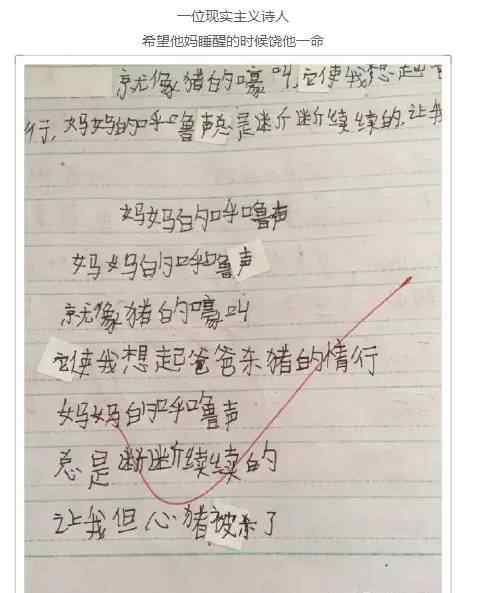 一位现实主义诗人
希望他妈睡醒的时候饶他一命
就像猪的嚎叫,它使我想起
行,妈妈的呼噜声总是断断续续的,让我
妈妈的呼噜声
妈妈的呼噜声
就像猪的嚎叫
它使我想起爸爸杀猪的情行
妈妈的呼噜声
总是断断续续的
让我但心猪被杀了